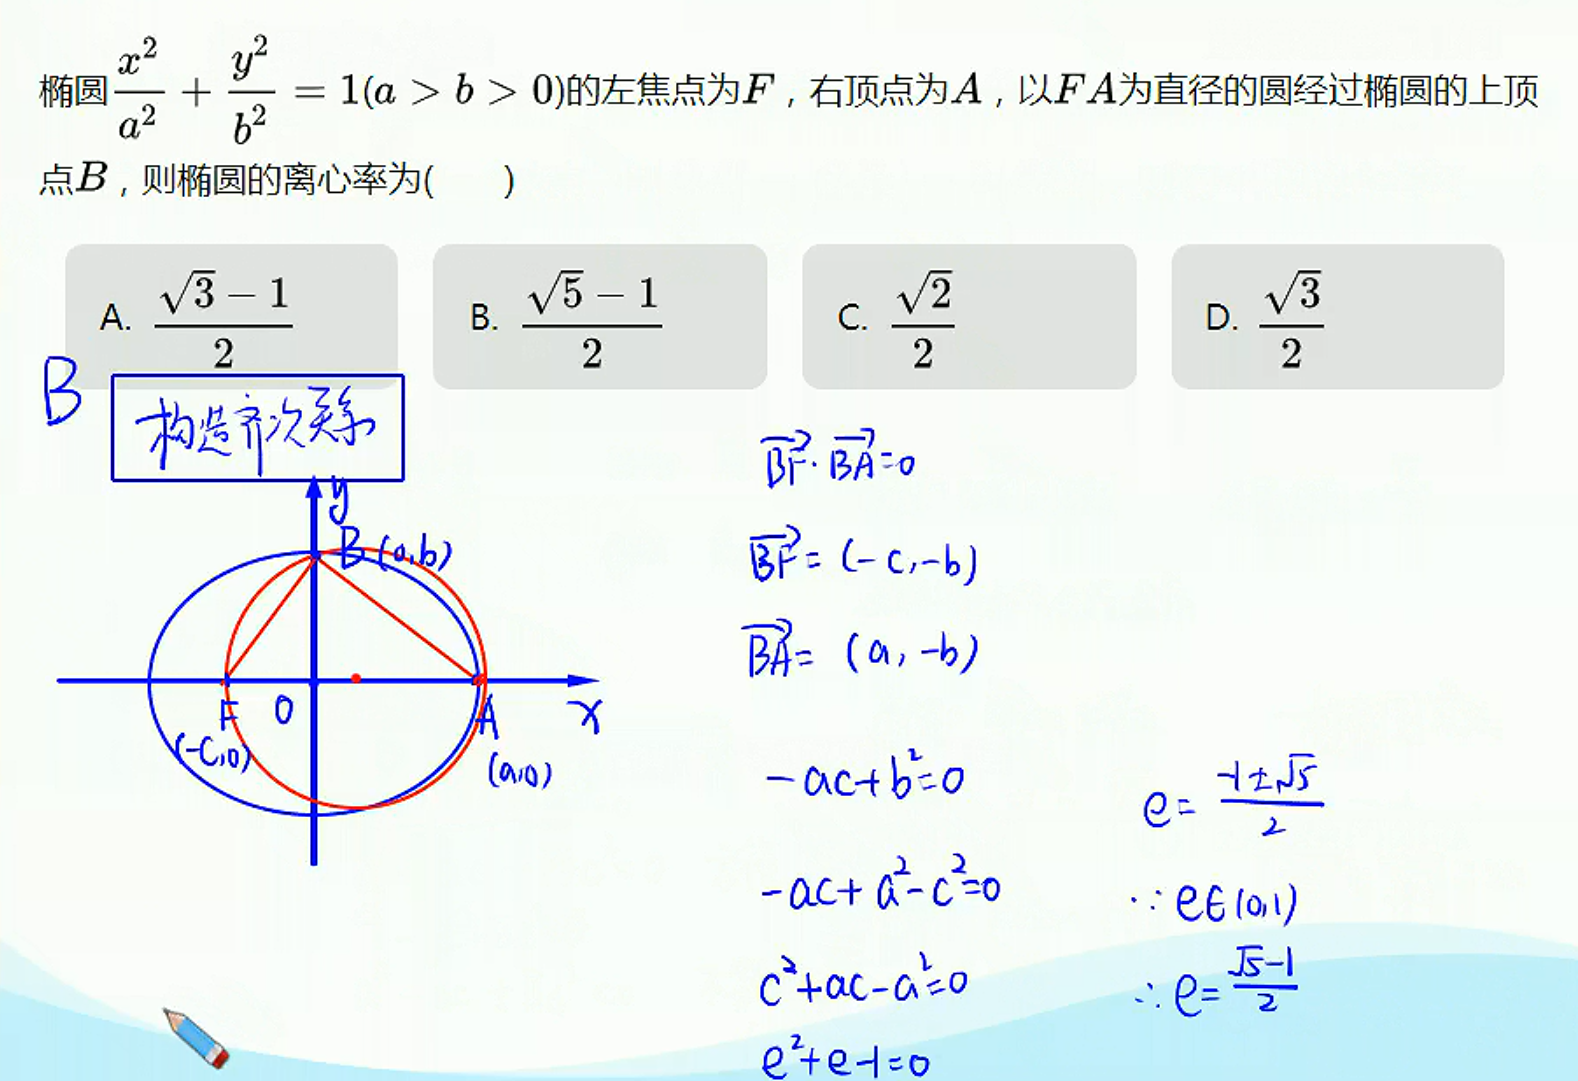 椭圆x²/a² + y²/b² = 1(a > b > 0)的左焦点为F，右顶点为A，以FA为直径的圆经过椭圆的上顶
点B，则椭圆的离心率为(　　)
A. (√3 − 1)/2 B. (√5 − 1)/2 C. √2/2 D. √3/2
B
构造齐次关系
y
B(0,b)
F O A x
(-c,0) (a,0)
BF→·BA→=0
BF→=(-c,-b)
BA→=(a,-b)
-ac+b²=0
-ac+a²-c²=0
c²+ac-a²=0
e²+e-1=0
e=(-1±√5)/2
∵e∈(0,1)
∴e=(√5-1)/2